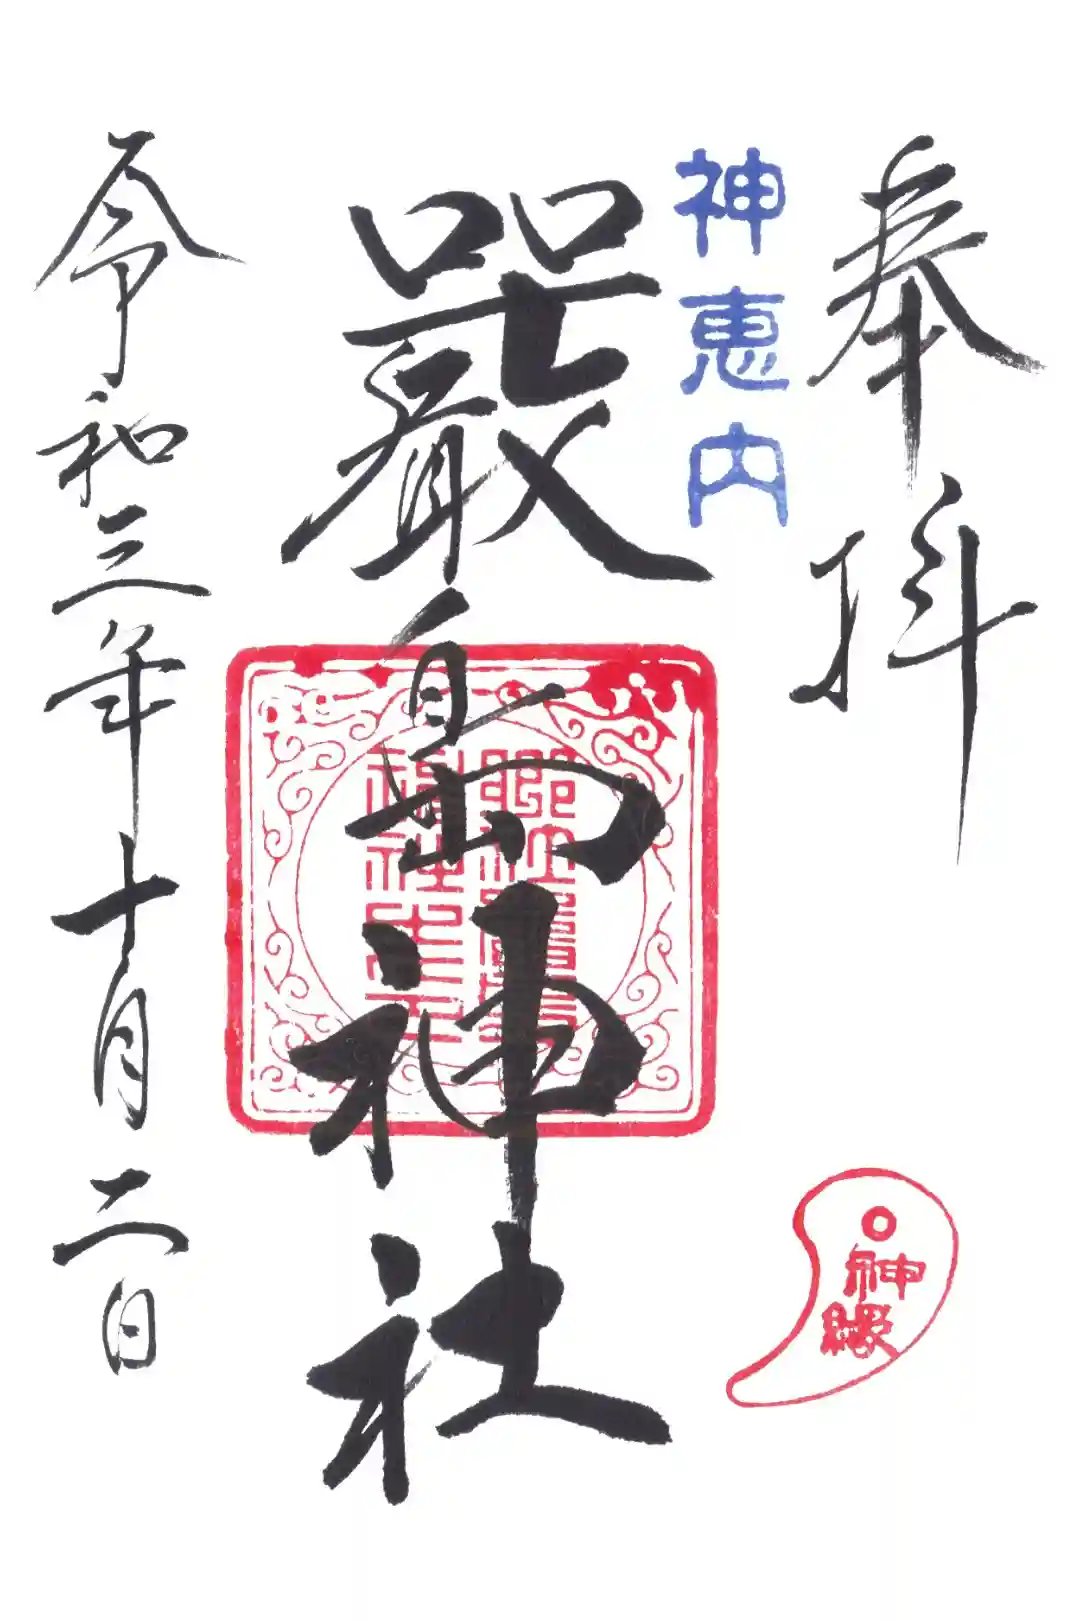 奉拝
神恵内
嚴島神社
神縁
令和三年十月二日